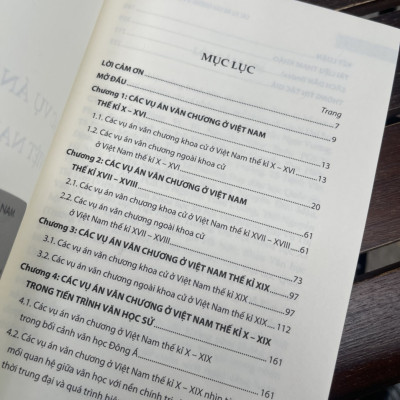 MỤC LỤC
Trang
LỜI CẢM ƠN 7
MỞ ĐẦU 9
Chương 1: CÁC VỤ ÁN VĂN CHƯƠNG Ở VIỆT NAM
THẾ KỈ X – XVI 13
1.1. Các vụ án văn chương khoa cử ở Việt Nam thế kỉ X – XVI 13
1.2. Các vụ án văn chương ngoài khoa cử
ở Việt Nam thế kỉ X – XVI 20
Chương 2: CÁC VỤ ÁN VĂN CHƯƠNG Ở VIỆT NAM
THẾ KỈ XVII – XVIII 61
2.1. Các vụ án văn chương khoa cử ở Việt Nam thế kỉ XVII – XVIII 61
2.2. Các vụ án văn chương ngoài khoa cử
ở Việt Nam thế kỉ XVII – XVIII 73
Chương 3: CÁC VỤ ÁN VĂN CHƯƠNG Ở VIỆT NAM THẾ KỈ XIX 97
3.1. Các vụ án văn chương khoa cử ở Việt Nam thế kỉ XIX 97
3.2. Các vụ án văn chương ngoài khoa cử ở Việt Nam thế kỉ XIX 112
Chương 4: CÁC VỤ ÁN VĂN CHƯƠNG Ở VIỆT NAM THẾ KỈ X – XIX
TRONG TIẾN TRÌNH VĂN HỌC SỬ 161
4.1. Các vụ án văn chương ở Việt Nam thế kỉ X – XIX
trong bối cảnh văn học Đông Á 161
4.2. Các vụ án văn chương ở Việt Nam thế kỉ X – XIX nhìn từ
mối quan hệ giữa văn học với nền chính trị
thời trung đại và quá trình
ÁN
NAM